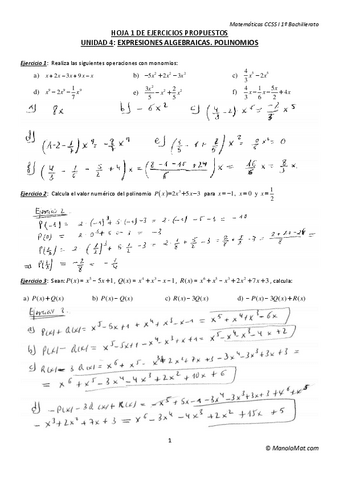 Matemáticas CCSS I 1º Bachillerato
HOJA 1 DE EJERCICIOS PROPUESTOS
UNIDAD 4: EXPRESIONES ALGEBRAICAS. POLINOMIOS
Ejercicio 1: Realiza las siguientes operaciones con monomios:
a) x+2x−3x+9x−x b) −5x²+2x²−3x² c) 4/3 x³−2x³
d) x⁹−2x⁹−1/7 x⁹ e) 3x²/5 −x²+2/5 x² f) 4/3 x−1/6 x−5x/2+4x
a) 8x b) −6x² c) (4/3 − 2) x³ = −2/3 x³
d) (1−2−1/7) x⁹ = −8/7 x⁹ e)
Ejercicio 2: Calcula el valor numérico del polinomio P(x)=2x³+5x−3 para x=−1, x=0 y x=1/2
Ejercicio 2
P(−1) = 2·(−1)³+5·(−1)−3 = 2·(−1)−5−3 = −10
P(0) = 2·0³+5·0−3 = −3
Ejercicio 3: Sean: P(x) = x⁵−5x+1, Q(x) = x⁴+x³−x−1, R(x) = x⁶+x⁵−x³+2x²+7x+3, calcula:
a) P(x)+Q(x) b) P(x)−Q(x) c) R(x)−3Q(x) d) −P(x)−3Q(x)+R(x)
Ejercicio 3
a) P(x)+Q(x) = x⁵−5x+1+x⁴+x³−x−1 = x⁵+x⁴+x³−6x
b) P(x)−Q(x) = x⁵−5x+1−x⁴−x³+x+1 = x⁵−x⁴−x³−4x+2
c) R(x)−3Q(x) = x⁶+x⁵−x³+2x²+7x+3−3x⁴−3x³+3x+3 =
= x⁶+x⁵−3x⁴−4x³+2x²+10x+6
d) −P(x)−3Q(x)+R(x) = −x⁵+5x−1−3x⁴−3x³+3x+3+x⁶+x⁵
−x³+2x²+7x+3 = x⁶−3x⁴−4x³+2x²+15x+5
1
© ManoloMat.com